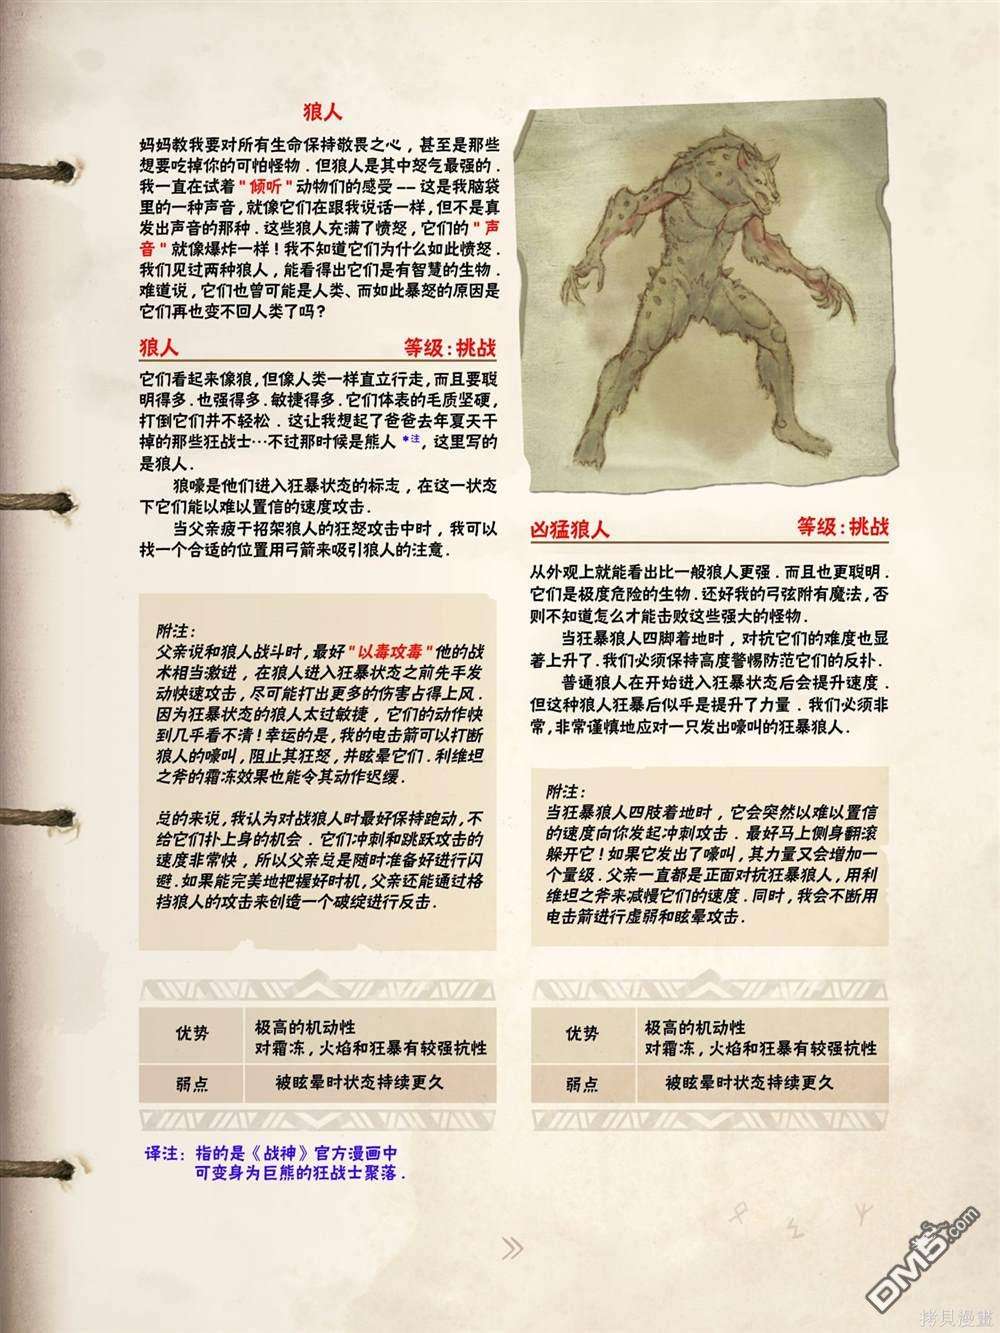 狼人
妈妈教我要对所有生命保持敬畏之心，甚至是那些
想要吃掉你的可怕怪物．但狼人是其中怒气最强的．
我一直在试着"倾听"动物们的感受——这是我脑袋
里的一种声音，就像它们在跟我说话一样，但不是真
发出声音的那种．这些狼人充满了愤怒，它们的"声
音"就像爆炸一样！我不知道它们为什么如此愤怒．
我们见过两种狼人，能看得出它们是有智慧的生物．
难道说，它们也曾可能是人类、而如此暴怒的原因是
它们再也变不回人类了吗？
狼人 等级：挑战
它们看起来像狼，但像人类一样直立行走，而且要聪
明得多．也强得多．敏捷得多．它们体表的毛质坚硬，
打倒它们并不轻松．这让我想起了爸爸去年夏天干
掉的那些狂战士…不过那时候是熊人*注，这里写的
是狼人．
狼嚎是他们进入狂暴状态的标志，在这一状态
下它们能以难以置信的速度攻击．
当父亲疲于招架狼人的狂怒攻击中时，我可以
找一个合适的位置用弓箭来吸引狼人的注意．
附注：
父亲说和狼人战斗时，最好"以毒攻毒"他的战
术相当激进，在狼人进入狂暴状态之前先手发
动快速攻击，尽可能打出更多的伤害占得上风．
因为狂暴状态的狼人太过敏捷，它们的动作快
到几乎看不清！幸运的是，我的电击箭可以打断
狼人的嚎叫，阻止其狂怒，并眩晕它们．利维坦
之斧的霜冻效果也能令其动作迟缓．
总的来说，我认为对战狼人时最好保持跑动，不
给它们扑上身的机会．它们冲刺和跳跃攻击的
速度非常快，所以父亲总是随时准备好进行闪
避．如果能完美地把握好时机，父亲还能通过格
挡狼人的攻击来创造一个破绽进行反击．
优势 极高的机动性
对霜冻，火焰和狂暴有较强抗性
弱点 被眩晕时状态持续更久
译注：指的是《战神》官方漫画中
可变身为巨熊的狂战士聚落．
凶猛狼人 等级：挑战
从外观上就能看出比一般狼人更强．而且也更聪明．
它们是极度危险的生物．还好我的弓弦附有魔法，否
则不知道怎么才能击败这些强大的怪物．
当狂暴狼人四脚着地时，对抗它们的难度也显
著上升了．我们必须保持高度警惕防范它们的反扑．
普通狼人在开始进入狂暴状态后会提升速度．
但这种狼人狂暴后似乎是提升了力量．我们必须非
常，非常谨慎地应对一只发出嚎叫的狂暴狼人．
附注：
当狂暴狼人四肢着地时，它会突然以难以置信
的速度向你发起冲刺攻击．最好马上侧身翻滚
躲开它！如果它发出了嚎叫，其力量又会增加一
个量级．父亲一直都是正面对抗狂暴狼人，用利
维坦之斧来减慢它们的速度．同时，我会不断用
电击箭进行虚弱和眩晕攻击．
优势 极高的机动性
对霜冻，火焰和狂暴有较强抗性
弱点 被眩晕时状态持续更久
DM5.com
拷貝漫畫